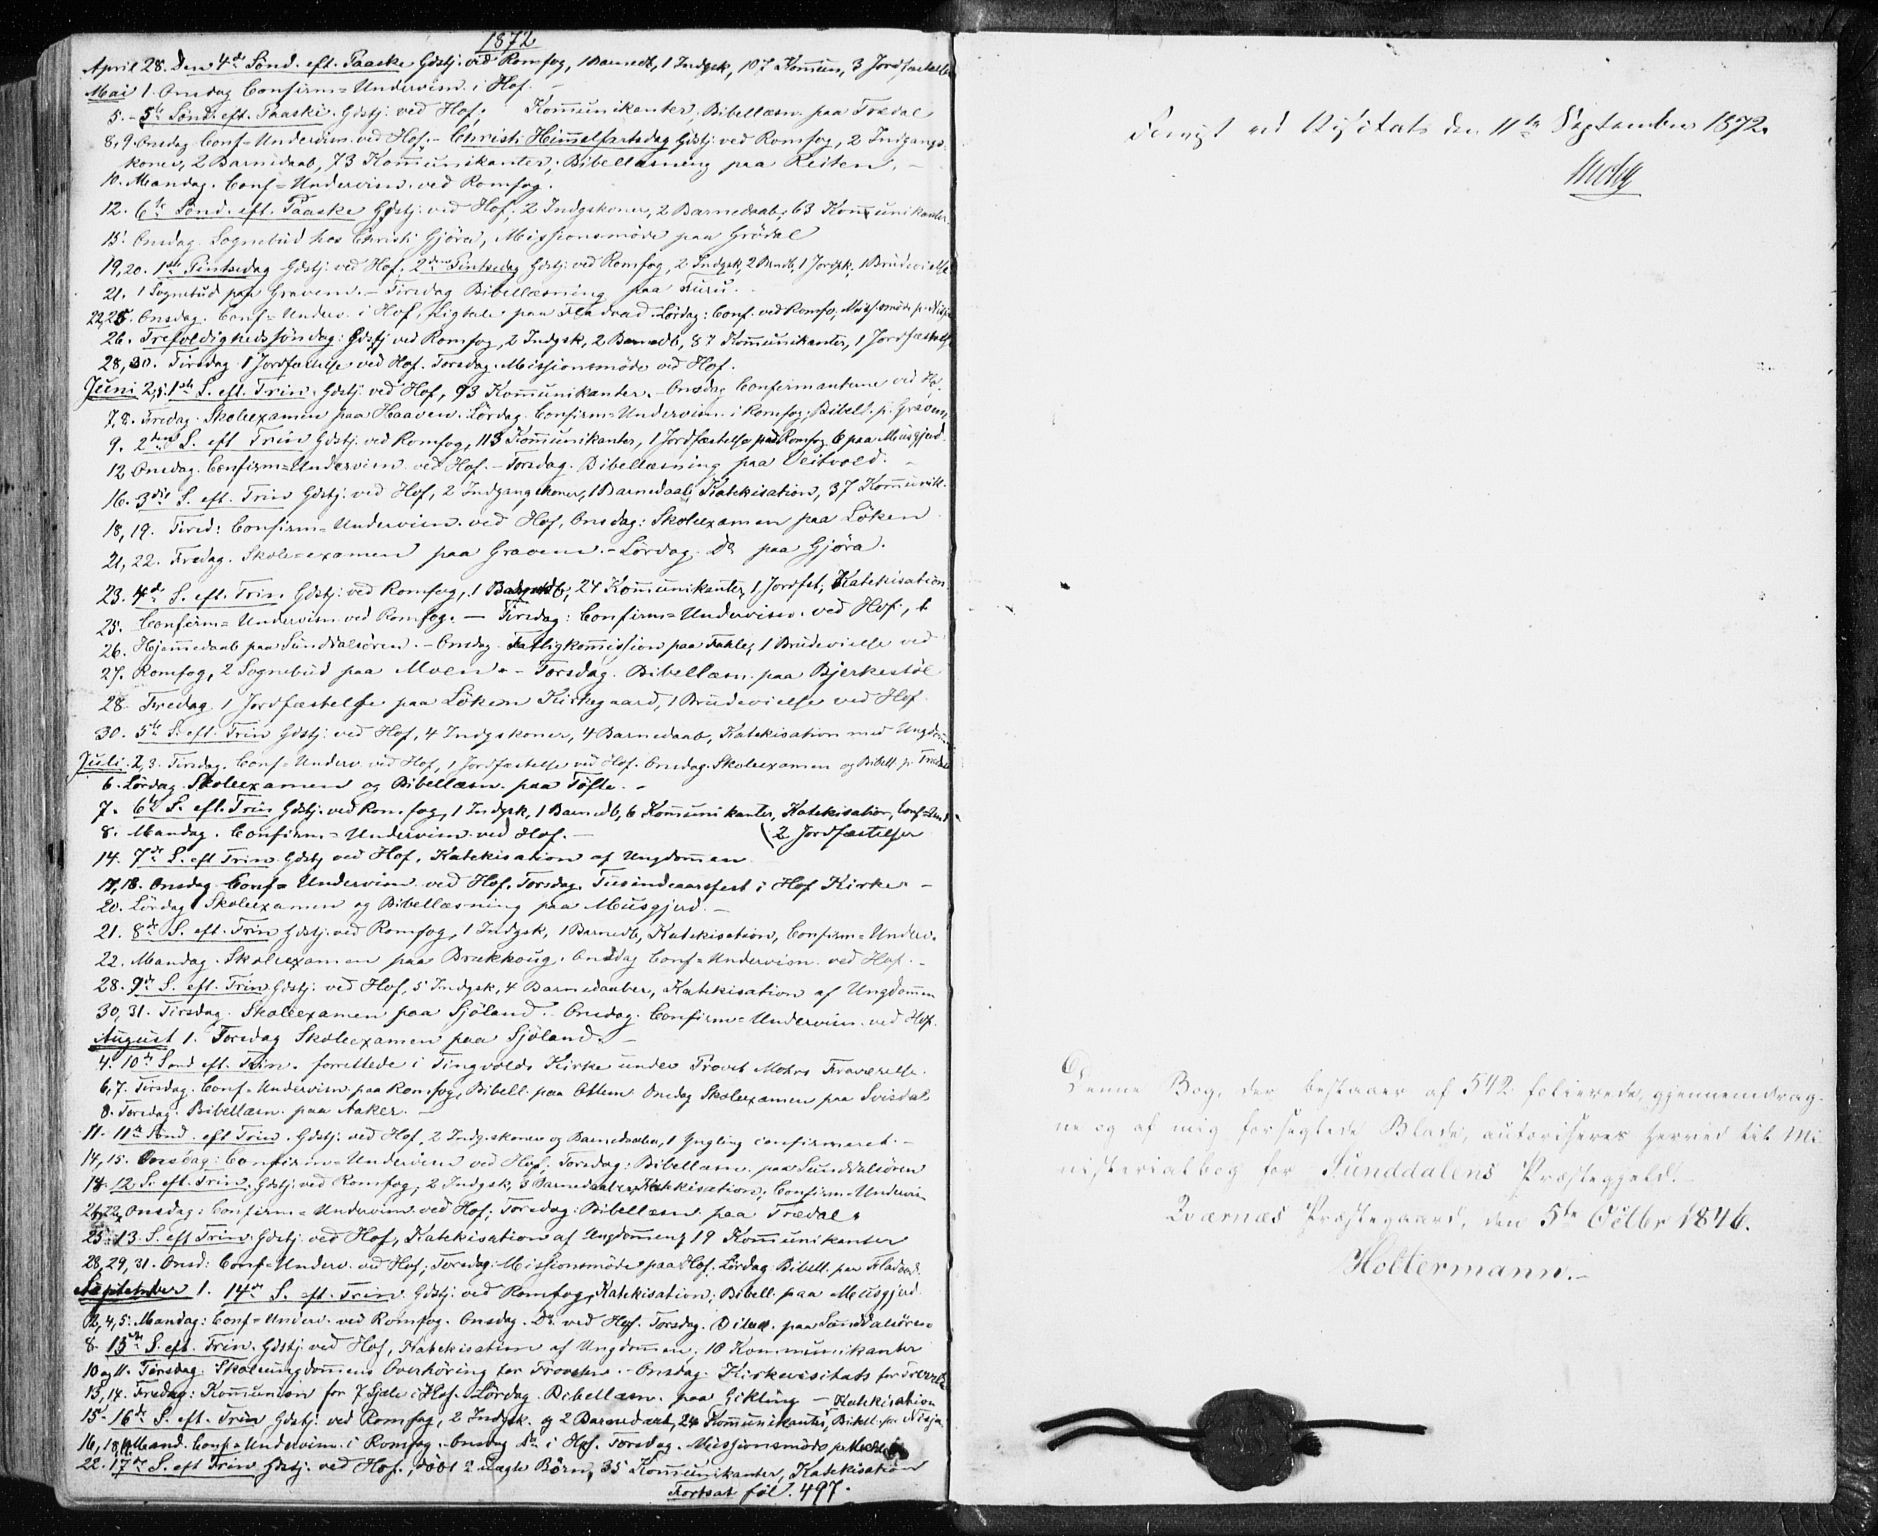 1872
April 28. Den 4de Sönd. eft. Paaske Gdstj. ved Romfog, 1 Barnedb, 1 Indgsk, 107 Kommun, 3 Jordfæstelser
Mai 1. Onsdag Confirm=Undervisn. i Hof. –
5. – 5te Sönd. eft. Paaske. Gdstj. ved Hof. Kommunikanter, Bibellæsn. paa Trædal
8, 9. Onsdag Conf=Undervisn. ved Hof. – Christi Himmelfartsdag Gdstj. ved Romfog, 2 Indgangs-
koner, 2 Barnedaab, 73 Kommunikanter; Bibellæsning paa Reiten. –
10. Mandag. Conf=Undervisn. ved Romfog.
12. 6te Sönd. eft. Paaske Gdstj. ved Hof; 2 Indgskoner, 2 Barnedaab, 63 Kommunikanter
15. Onsdag Sognebud hos Christi Gjöra, Missionsmöde paa Grödal
19, 20. 1ste Pintsedag Gdstj. ved Hof. 2den Pintsedag Gdstj. ved Romfog, 2 Indgsk, 2 Barndb, 1 Jordfk, 1 Brudevielse
21. 1 Sognebud paa Gravem. – Tirsdag Bibellæsning paa Furu. –
22, 25. Onsdag. Conf=Underv. i Hof, Ligtale paa Fladvad – Lördag: Conf. ved Romfo, Missionsmöde p. Nisja
26. Trefoldighedssöndag: Gdstj. ved Romfog, 2 Indgsk, 2 Barnedb, 87 Kommunikanter, 1 Jordfæstelse
28, 30. Tirsdag 1 Jordfæstelse ved Hof. Torsdag. Missionsmöde ved Hof.
Juni 2, 5. 1ste S. eft. Trin. Gdstj. ved Hof, 93 Kommunikanter. – Onsdag Confirmanterne ved Hof.
7, 8. Fredag. Skoleexamen paa Haaven. Lördag. Confirm=Undervisn. i Romfog; Bibell. p. Gravem,
9. 2den S. eft Trin Gdstj. ved Romfog, 113 Kommunikanter, 1 Jordfæstelse paa Romfog 6 paa Musgjerd.
12. Onsdag. Confirm=Undervisn. ved Hof. – Torsdag. Bibellæsning paa Veitvold. –
16. 3die S. eft. Trin Gdstj. ved Hof, 2 Indgangskoner, 1 Barnedaab, Katekisation, 37 Kommunik.
18, 19. Tirsd: Confirm=Undervisn. ved Hof, Onsdag: Skoleexamen paa Löken
21, 22. Fredag. Skole=examen paa Gravem. – Lördag. Do paa Gjöra.
23. 4de S. eft. Trin. Gdstj. ved Romfog, 1 Barnedb; 24 Kommunikanter, 1 Jordfst, Katekisation
25. Confirm=Undervisn. ved Romfog. – Tirsdag: Confirm=Undervisn. ved Hof, 1
26. Hjemmedaab paa Sunddalsören. – Onsdag. Fattigkommission paa Fahle, 1 Brudevielse ved
27. Romfog, 2 Sognebud paa Moen. – Torsdag. Bibellæsn. paa Bjerkestöl
28. Fredag. 1 Jordfæstelse paa Löken Kirkegaard, 1 Brudevielse ved Hof.
30. 5te S. eft. Trin Gdstj. ved Hof, 4 Indgskoner, 4 Barnedaab, Katekisation med Ungdom
Juli. 2, 3. Tirsdag. Conf=Underv. ved Hof, 1 Jordfæstelse ved Hof. Onsdag. Skoleexamen og Bibell. p.
6. Lördag. Skoleexamen og Bibellæsn. paa Tofte. –
7. 6te S. eft. Trin Gdstj. ved Romfog, 1 Indgsk, 1 Barnedb, 6 Kommunikanter, Katekisation, Conf=Und
8. Mandag. Confirm.=Undervisn. ved Hof. – (2 Jordfæstelser
14. 7de S. eft Trin. Gdstj. ved Hof, Katekisation af Ungdommen
17, 18. Onsdag Conf=Undervisn. ved Hof. Torsdag. Tusindaarsfest i Hof Kirke. –
20. Lördag Skoleexamen og Bibellæsning paa Musgjerd. –
21. 8de S. eft. Trin Gdstj. ved Romfog, 1 Indgsk, 1 Barnedb, Katekisation, Confirm=Underv.
22. Mandag. Skoleexamen paa Brækhoug. Onsdag Conf=Undervisn. ved Hof. –
28. 9de S. eft. Trin. Gdstj. ved Hof, 5 Indgsk, 4 Barnedaaber, Katekisation af Ungdommen
30, 31. Tirsdag. Skoleexamen paa Sjöland. – Onsdag. Confirm=Undervisn. ved Hof.
August 1. Torsdag Skoleexamen paa Sjöland. –
4. 10de Sönd eft. Trin. forrettede i Tingvolds Kirke under Provst Mohrs Fraværelse.
6, 7. Tirsdag. Conf=Undervisn. paa Romfog, Bibell. paa Ottem Onsdag Skoleexamen paa Svisdal
8. Torsdag. Bibellæsn. paa Aaker. –
11. 11te Sönd. eft Trin. Gdstj. ved Hof, 2 Indgskoner og Barnedaaber, 1 Yngling confirmeret. –
14, 15. Onsdag: Confirm=Undervisn ved Hof; Torsdag: Bibellæsn. paa Sunddalsören
18. 12. S. eft. Trin. Gdstj. ved Romfog, 2 Indgsk, 3 Barnedaaber, Katekisation; Confirm=Undervis
21, 22. Onsdag: Confirm=Undervisn. ved Hof; Torsdag: Bibellæsn paa Trædal.
25. 13. S. eft Trin. Gdstj. ved Hof, Katekisation af Ungdommen, 19 Kommunikanter
28, 29, 31. Onsd: Conf=Underv. ved Hof; Torsdag: Missionsmöde paa Hof. Lördag Bibell. paa Fladvad.
September 1. 14de S. eft. Trin. Gdstj. ved Romfog, Katekisation; Bibell. paa Musgjerd.
2, 4, 5. Mandag: Conf=Underv. ved Romfog. Onsdag. Do ved Hof. Torsdag. Bibell. paa Sunddalsören
8. 15de S. eft. Trin. Gdstj. ved Hof, Katekisation af Ungdommen, 10 Kommunikanter
10 og 11. Tirsdag. Skoleungdommens Overhöring for Provsten. – Onsdag. Kirkevisitats for Provsten
13, 14. Fredag: Kommunion for 7 Sjæle i Hof. Lördag. Bibellæsn. paa Gikling – Katekisation
15. 16de S. eft. Trin Gdstj. ved Romfog, 2 Indgsk. og 2 Barnedaab, 24 Kommunikanter, Bibell. p. Nisja
16, 18, 19. Mand. Conf=Undervisn. i Romfog. Onsdag Do i Hof. Torsdag. Missionsmöde p.
22. 17de S. eft Trin Gdstj. ved Hof., döbt 2 uægte Börn, 35 Kommunikanter, Katekisation
Fortsat fol. 497.
Fremlagt ved Visitats den 11te September 1872.
Mohr
Denne Bog, der bestaaer af 542 folierede, gjennemdrag-
ne og af mig forseglede Blade, autoriseres herved til Mi
nisterialbog for Sunddalens Præstegjeld. –
Qværnæs Præstegaard, den 5te Octbr 1846.
Holtermann. –